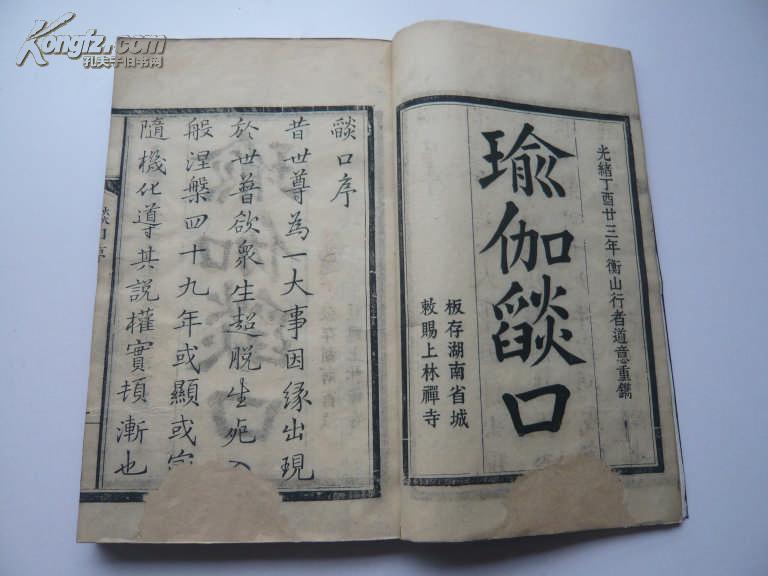 Kongfz.com
孔夫子旧书网
光緒丁酉廿三年衡山行者道意重鐫
瑜伽燄口
板存湖南省城
敕賜上林禪寺
燄口序
昔世尊為一大事因緣出現
於世普欲衆生超脫生死入
般涅槃四十九年或顯或密
隨機化導其說權實頓漸也
燄口序